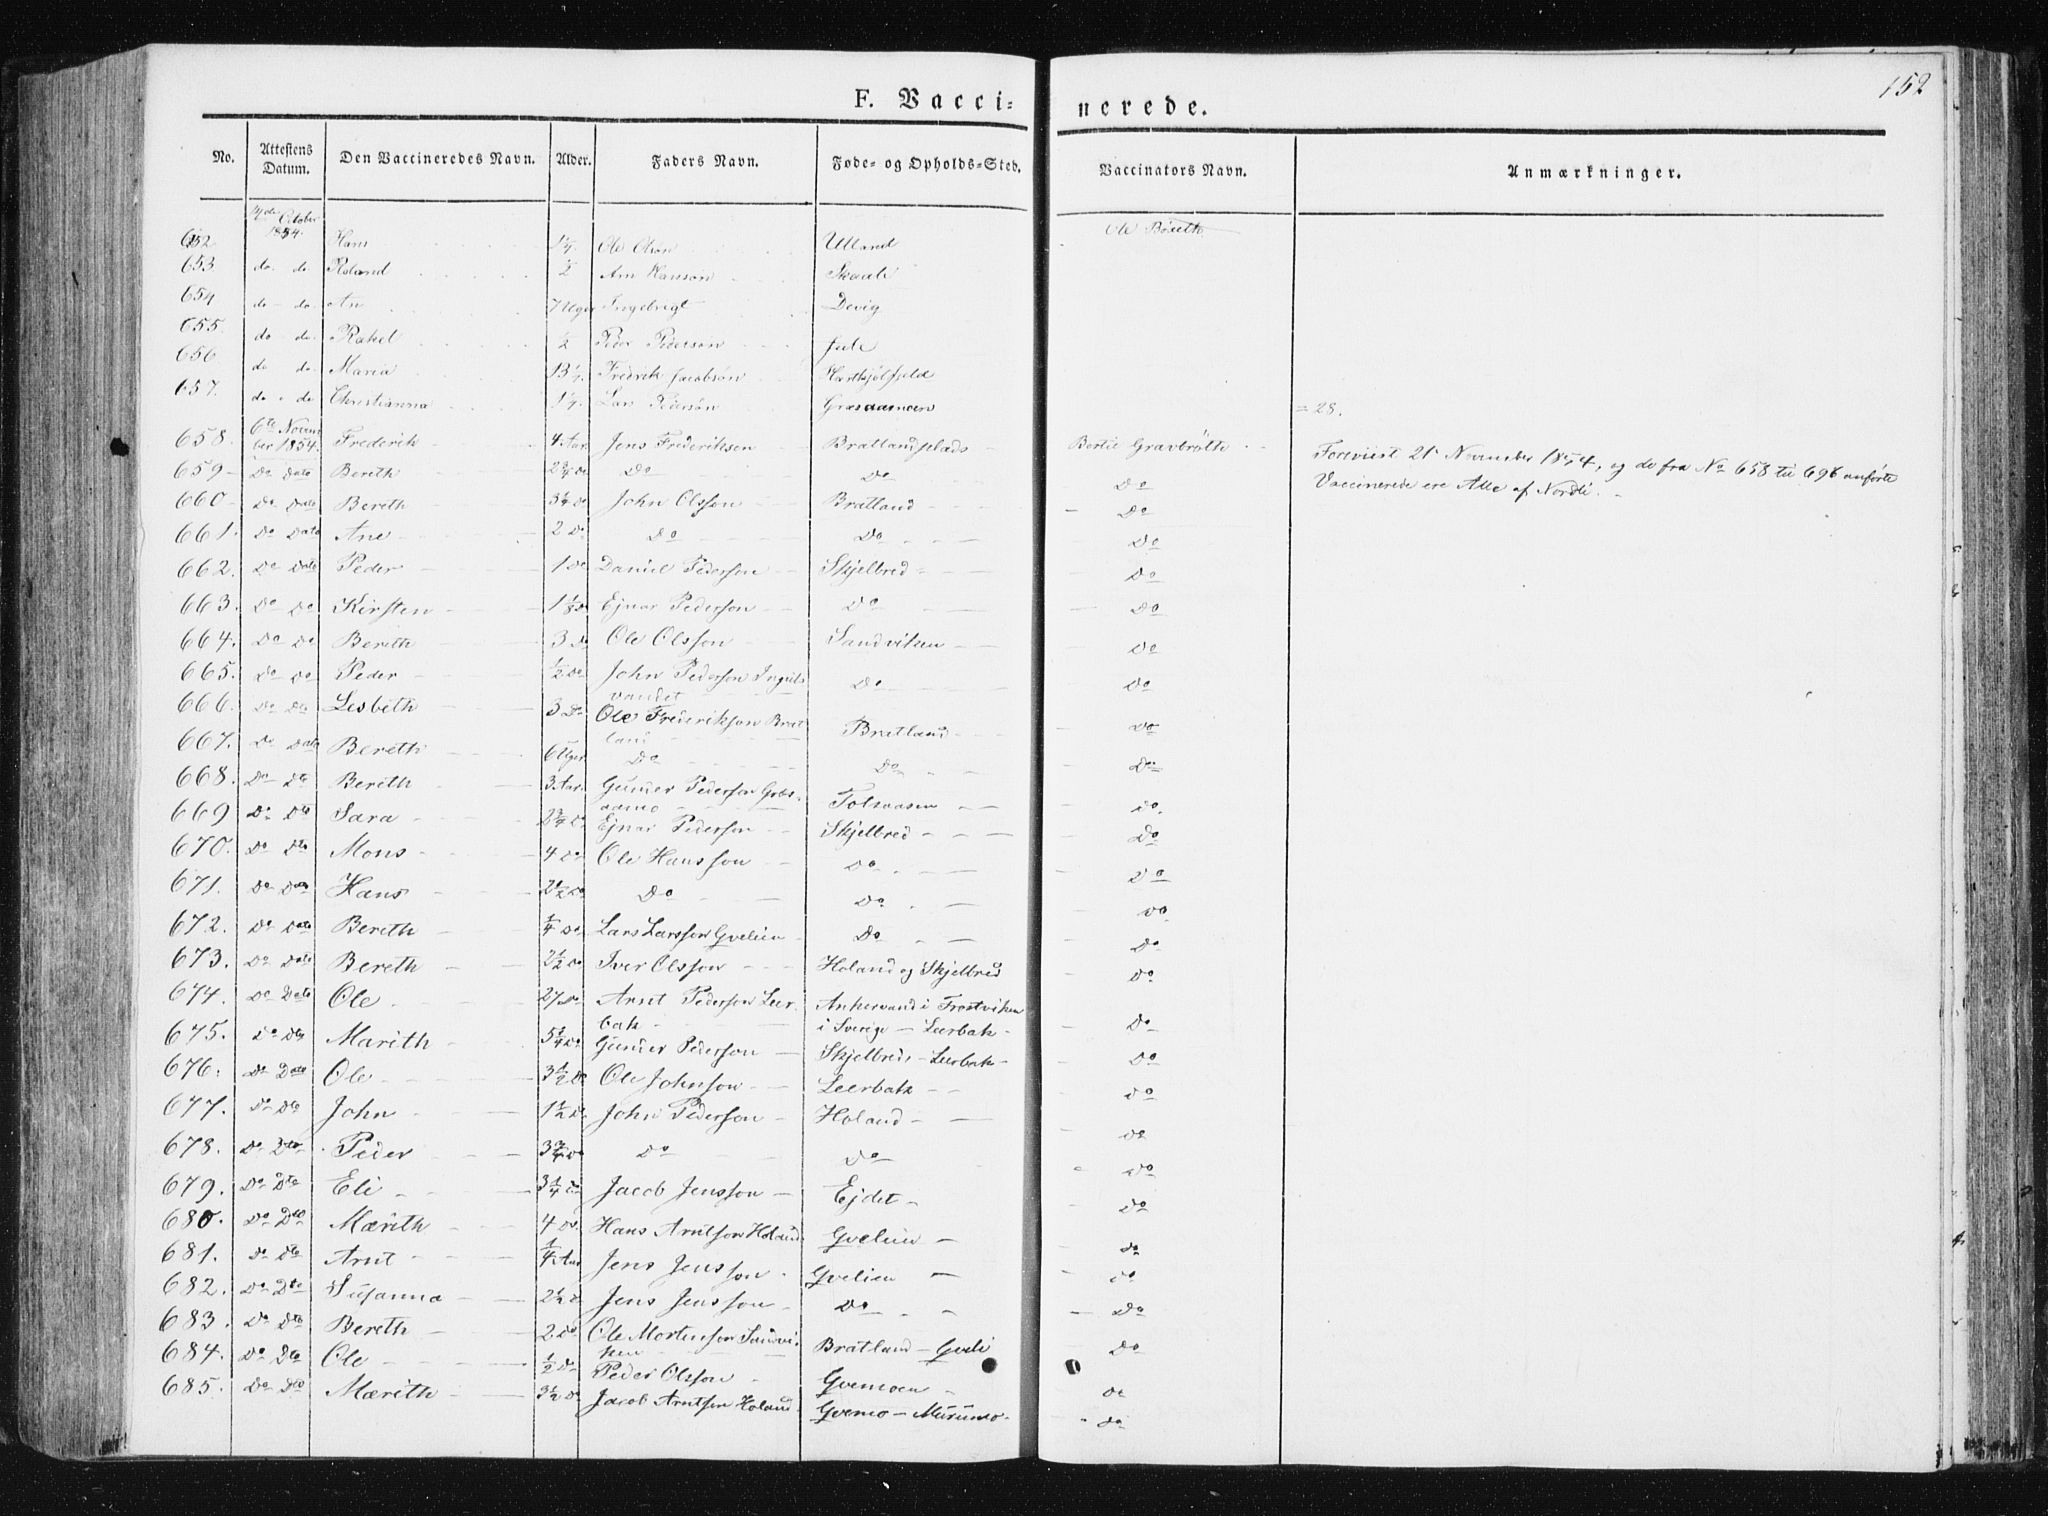 152
F. Vaccinerede.
No. Attestens Datum. Den Vaccineredes Navn. Alder. Faders Navn. Føde- og Opholds-Sted. Vaccinators Navn. Anmærkninger.
652 4de October 1854. Hans 1/4 Ole Olsøn Ulland Ole Bråeth
653. do. do Roland 1/2 Arn Hansøn Skaale
654 do - do. An 7 Uger Ingebrigt Devig
655. do - do. Rakel 1/2 Peder Pedersøn Jule
656 do do. Maria 13 1/4 Fredrik Jacobsøn Hartkjølfjeld
657. do - do Christianna 1/4 Lars Pedersøn Græsaamoen = 28.
658. 6te November 1854. Frederik 4 Aar. Jens Frederiksen Bratlandplads Bertil Gravbrøtte Foreviist 21 November 1854, og de fra No 658 til 696 anførte
659 Do Dato Bereth 2 3/4 Do Do Do Do Vaccinerede ere Alle af Nordli.
660 Do Dato Bereth 3 1/4 Do John Olsson Bratland Do
661. Do Dato Ane 2 Do. Do Do Do
662. Do Dato Peder 1 Do Daniel Pederson Skjelbred Do
663. Do Do Kirsten 1 1/8 Do Ejnar Pederson Do Do
664. Do Do Bereth 3 Do Ole Olsson Sandviken Do
665. Do Do Peder 1/2 Do John Pederson Ingulsvandet Do Do
666. Do Do Lesbeth 3 Do Ole Frederikson Bratland Bratland Do
667. Do Dato Bereth 6 Uger Do Do Do
668. Do Dto Bereth 3 Aar. Gunder Pederson Gosaamo Tolsaasen Do.
669 Do Dto Sara 2 3/4 Do Ejnar Pederson Skjelbred Do
670. Do Dto Mons 4 Do Ole Hansson Do Do
671. Do Dato Hans 2 1/2 Do Do Do Do
672. Do Dato Bereth 1/4 Do Lars Larsson Gvelien Do Do
673. Do Dato Bereth 2 1/2 Do Iver Olsson Holand og Skjelbred Do
674. Do Dato Ole 27 Do Arnt Pederson Leerbak Ankervand i Frostviken i Sverige - Leerbak Do
675. Do Dto Marith 5 1/4 Do Gunder Pederson Skjelbred - Leerbak Do
676. Do Dato Ole 3 1/2 Do Ole Johnson Leerbak Do
677. Do Dto John 1 1/2 Do John Pederson Holand Do
678. Do Dto Peder 3 3/4 Do Do Do Do
679. Do Dto Eli 3 1/4 Do Jacob Jensson Ejdet Do
680. Do Dto Mærith 4 Do Hans Arntson Holand Gvelien Do
681. Do Dto Arnt 1/4 Aar Jens Jensson Gvelien Do
682. Do Dto Susanna 2 1/2 Do Jens Jensson Do Do
683. Do Dto Bereth 2 Do Ole Mortenson Sandviken Bratland - Gveli Do
684. Do Dto Ole 1/2 Do Peder Olsson Gvemoen Do
685. Do Dto Mærith 3 1/2 Do Jacob Arntson Holand Gvemo - Murumo Do